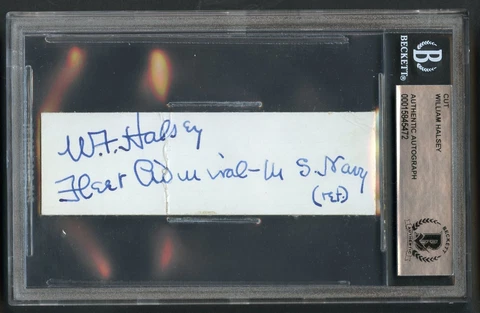 W.F. Halsey
Fleet Admiral - U.S. Navy
(ret.)
BECKETT
CUT
WILLIAM HALSEY
AUTHENTIC AUTOGRAPH
00015945472
BECKETT
AUTHENTICATED